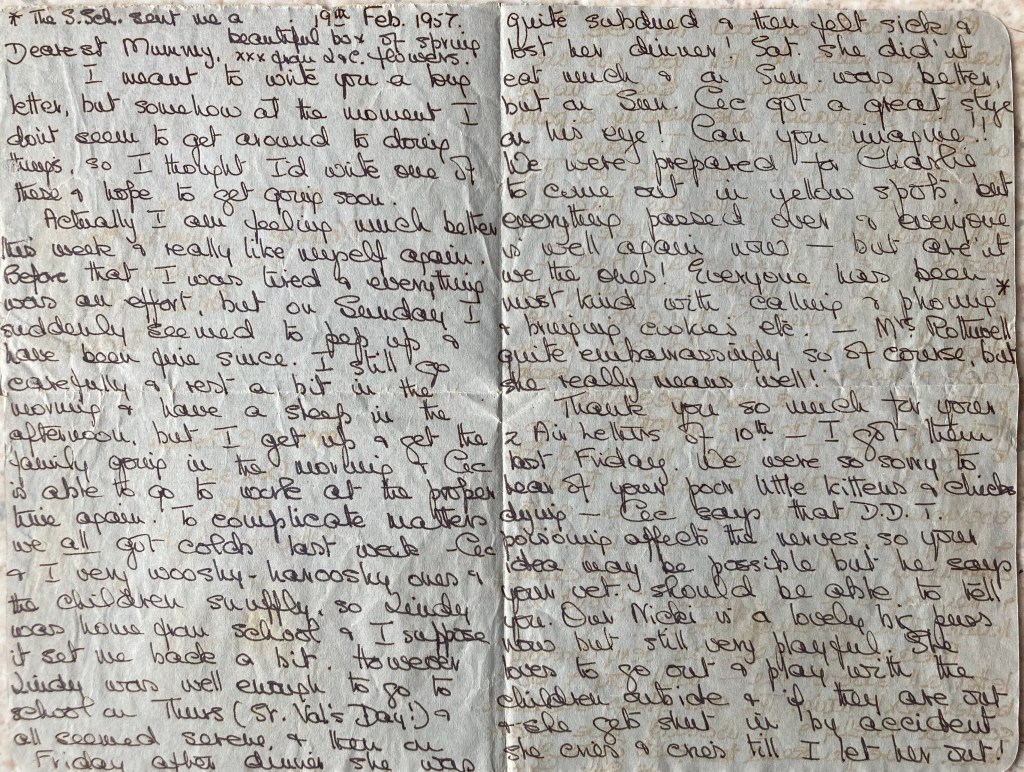 * The S.Sch. sent me a
beautiful box of spring
flowers.
19th Feb. 1957.
Dearest Mummy, xxx from L & C.
I meant to write you a long
letter, but somehow at the moment I
don't seem to get around to doing
things, so I thought I'd write one of
these & hope to get going soon.
Actually I am feeling much better
this week & really like myself again.
Before that I was tired & everything
was an effort, but on Sunday I
suddenly seemed to pep up &
have been fine since. I still go
carefully & rest a bit in the
morning & have a sleep in the
afternoon, but I get up & get the
family going in the morning & Cec
is able to go to work at the proper
time again. To complicate matters
we all got colds last week – Cec
& I very wooshy-harooshy ones &
the children snuffly, so Lindy
was home from school & I suppose
it set me back a bit. However
Lindy was well enough to go to
school on Thurs (St. Val's Day!) &
all seemed serene, & then on
Friday after dinner she was
quite subdued & then felt sick &
lost her dinner! Sat she did'nt
eat much & on Sun. was better,
but on Sun. Cec got a great stye
on his eye! Can you imagine!!
We were prepared for Charlie
to come out in yellow spots, but
everything passed over & everyone
is well again now – but are'nt
we the ones! Everyone has been
most kind with calling & phoning *
& bringing cookies etc. – Mrs Pottwell
quite embarrassingly so of course but
she really means well!
Thank you so much for your
2 Air Letters of 10th – I got them
last Friday. We were so sorry to
hear of your poor little kittens & chicks
dying – Cec says that D.D.T.
poisoning affects the nerves, so your
idea may be possible but he says
your vet. should be able to tell
you. Our Nicki is a lovely big puss
now but still very playful. She
loves to go out & play with the
children outside & if they are out
& she gets shut in by accident
she cries & cries till I let her out!